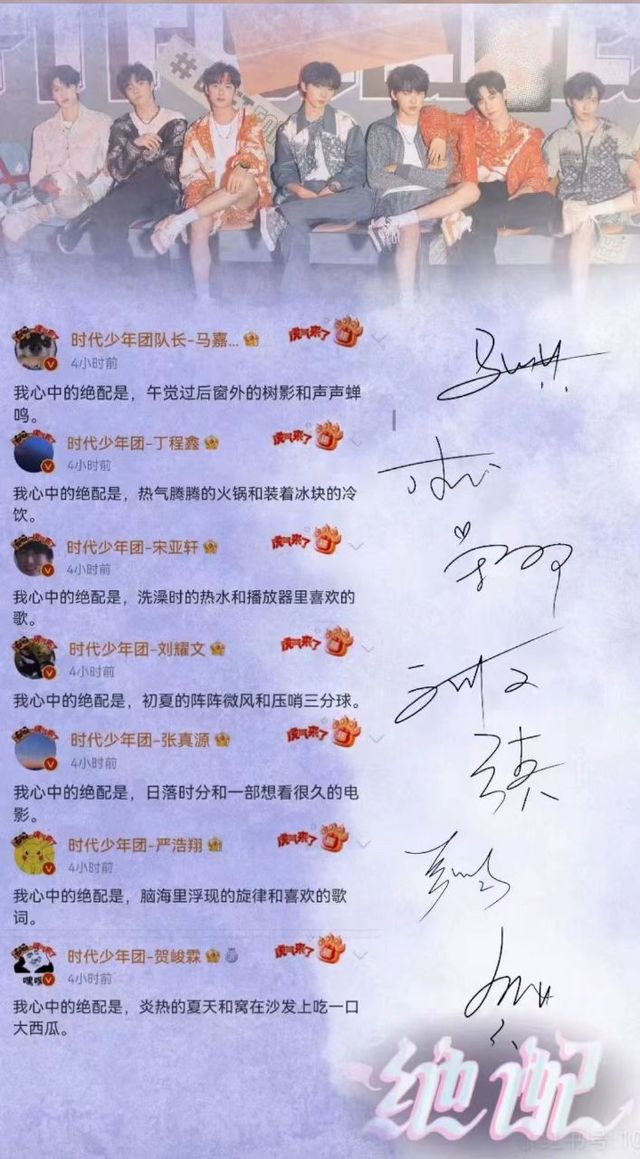 时代少年团队长-马嘉...
虎气来了
4小时前
我心中的绝配是，午觉过后窗外的树影和声声蝉
鸣。
时代少年团-丁程鑫
虎气来了
4小时前
我心中的绝配是，热气腾腾的火锅和装着冰块的冷
饮。
时代少年团-宋亚轩
虎气来了
4小时前
我心中的绝配是，洗澡时的热水和播放器里喜欢的
歌。
时代少年团-刘耀文
虎气来了
4小时前
我心中的绝配是，初夏的阵阵微风和压哨三分球。
时代少年团-张真源
虎气来了
4小时前
我心中的绝配是，日落时分和一部想看很久的电
影。
时代少年团-严浩翔
虎气来了
4小时前
我心中的绝配是，脑海里浮现的旋律和喜欢的歌
词。
时代少年团-贺峻霖
虎气来了
4小时前
我心中的绝配是，炎热的夏天和窝在沙发上吃一口
大西瓜。
绝配